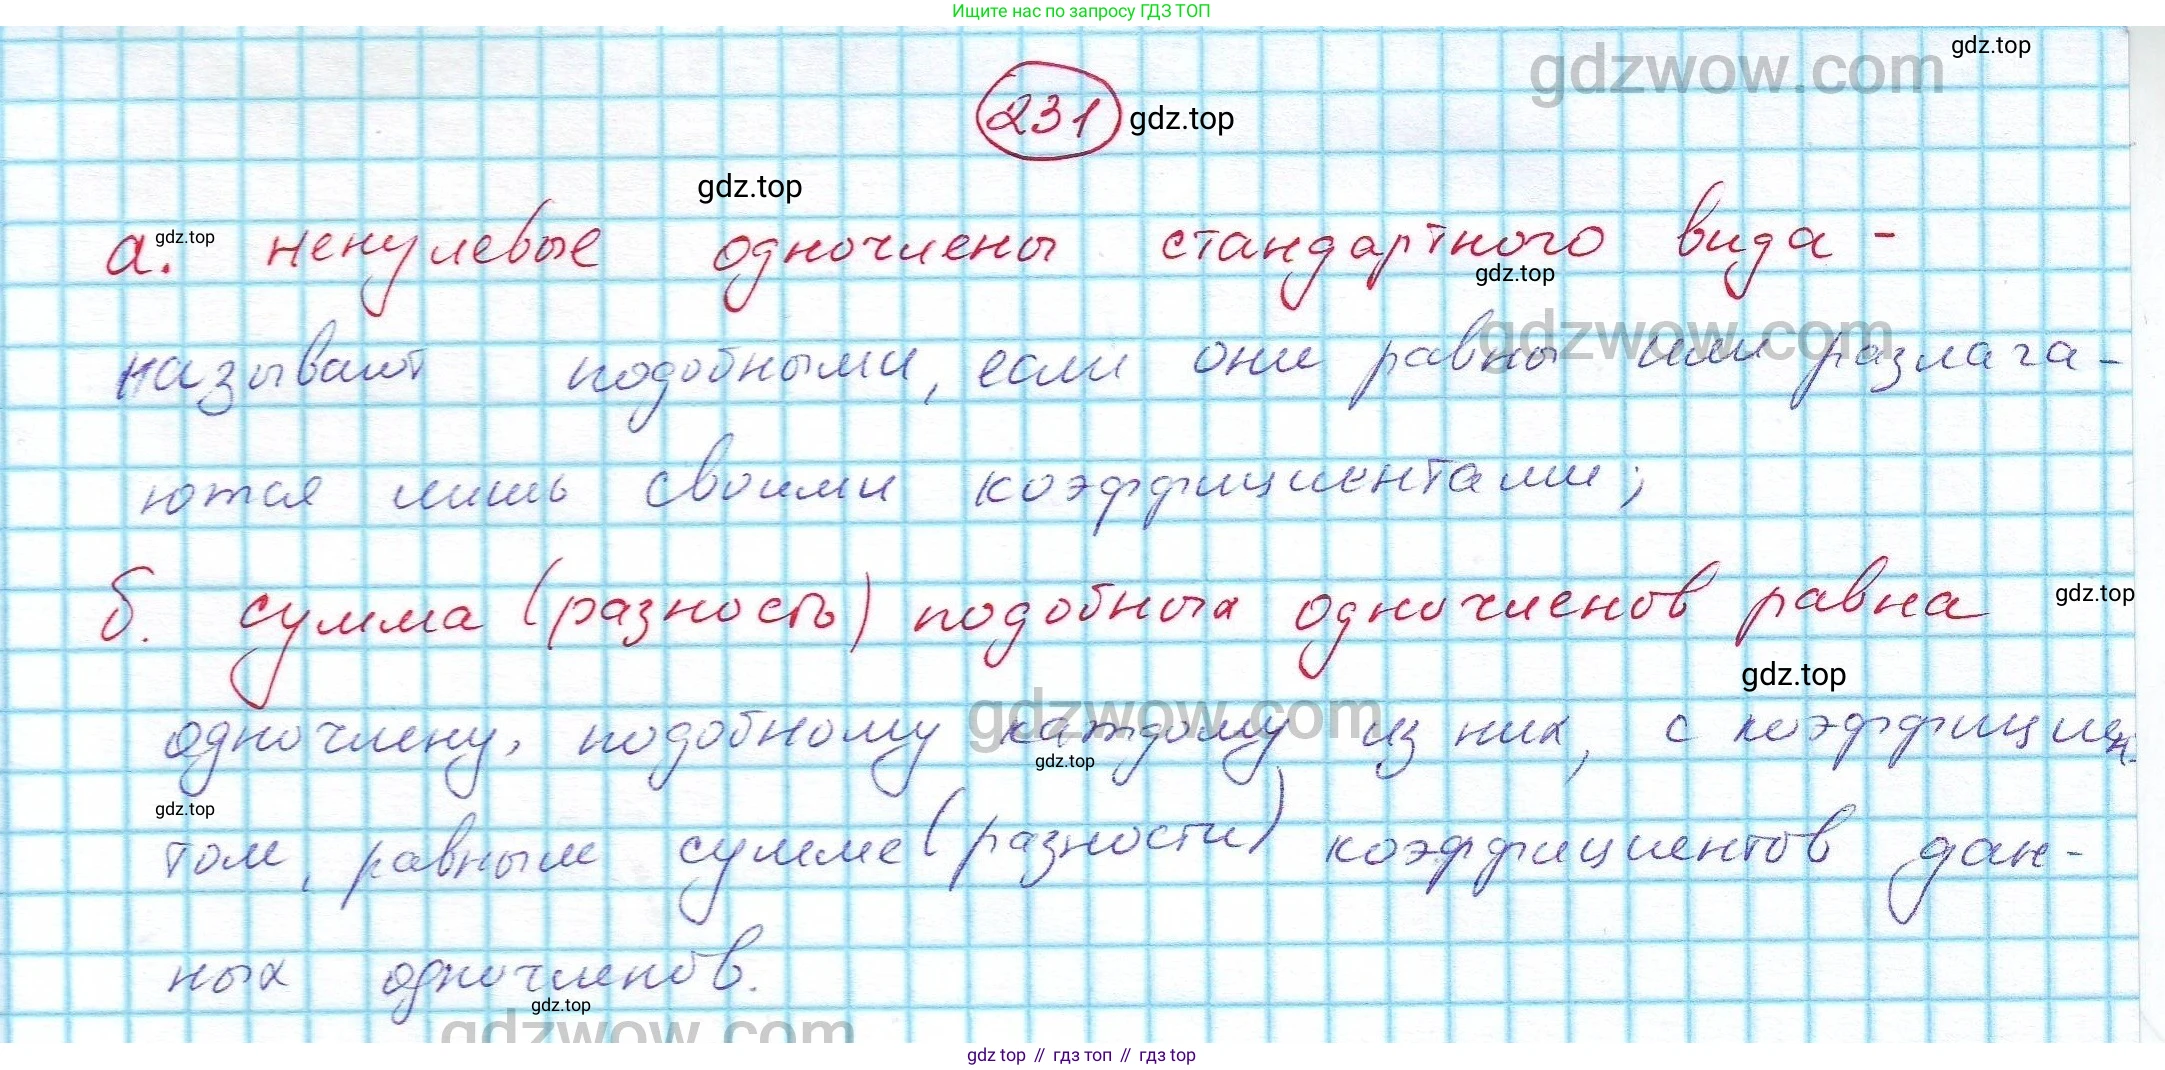 Ищите нас по запросу ГДЗ ТОП
gdz.top
gdzwow.com
231 gdz.top
gdz.top
а. gdz.top ненулевые одночлены стандартного вида -
gdz.top
gdzwow.com
называют подобными, если они равны или разлага-
ются лишь своими коэффициентами;
б. сумма (разность) подобных одночленов равна gdz.top
gdz.top
gdzwow.com
одночлену, подобному каждому из них, с коэффициен-
gdz.top
gdz.top
том, равным сумме (разности) коэффициентов дан-
ных одночленов.
gdz.top
gdzwow.com
gdz top // гдз топ // гдз top